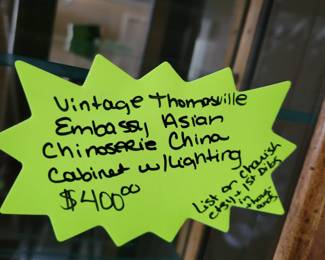 Vintage Thomasville
Embassy Asian
Chinoserie China
Cabinet w/Lighting
$400.00
List on chairish
Etsy & 1st Dibs
in
thous-
ands